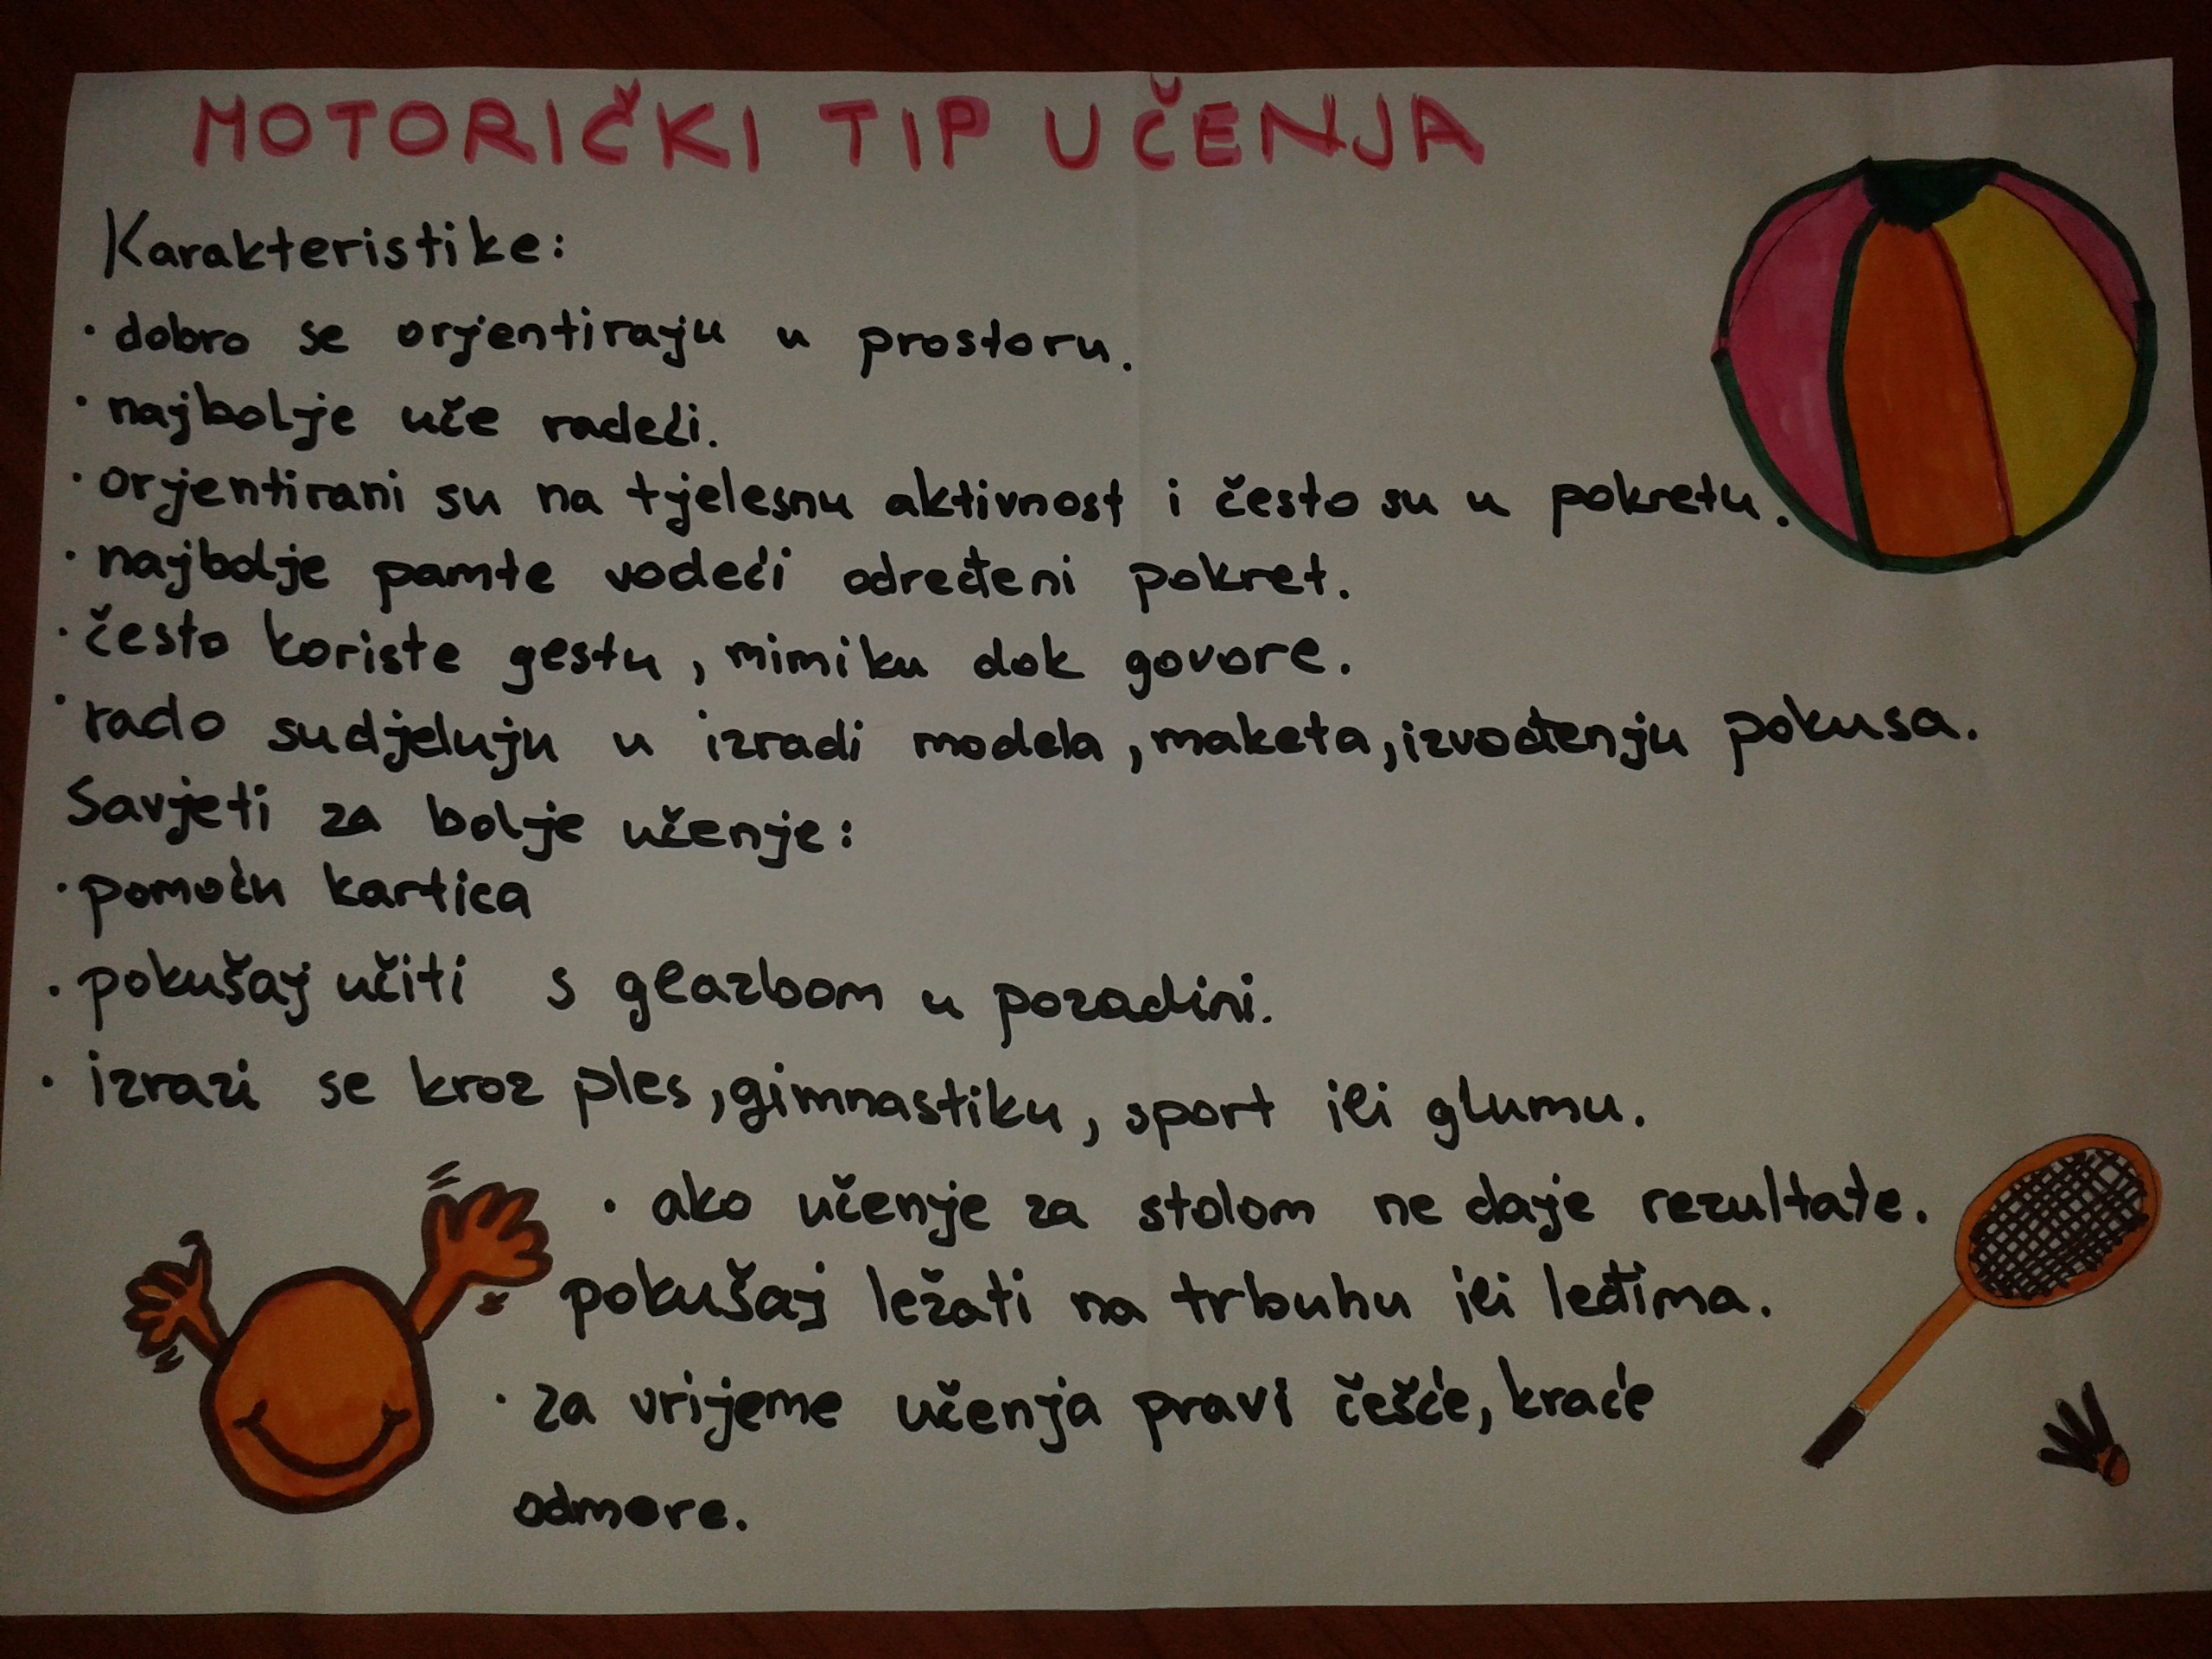 MOTORIČKI TIP UČENJA
Karakteristike:
· dobro se orjentiraju u prostoru.
· najbolje uče radeći.
· orjentirani su na tjelesnu aktivnost i često su u pokretu.
· najbolje pamte vodeći određeni pokret.
· često koriste gestu, mimiku dok govore.
· rado sudjeluju u izradi modela, maketa, izvođenju pokusa.
Savjeti za bolje učenje:
· pomoću kartica
· pokušaj učiti s glazbom u pozadini.
· izrazi se kroz ples, gimnastiku, sport ili glumu.
· ako učenje za stolom ne daje rezultate.
pokušaj ležati na trbuhu ili leđima.
· za vrijeme učenja pravi češće, kraće
odmore.